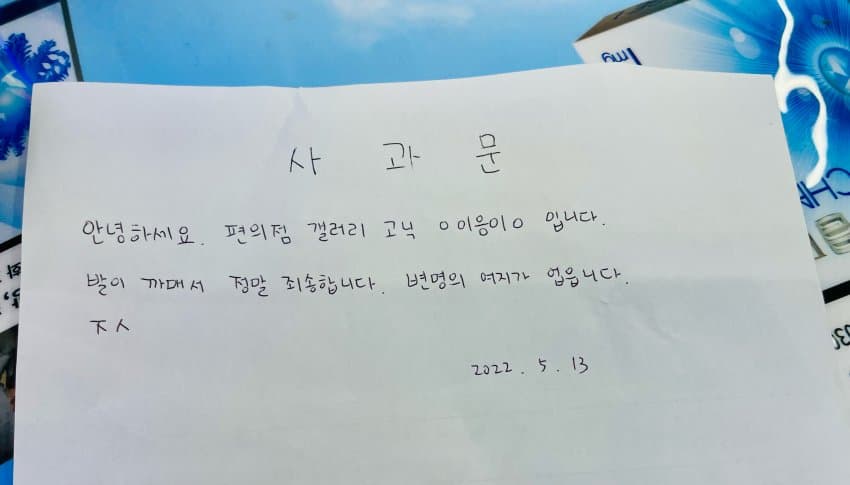 사 과 문
안녕하세요. 편의점 갤러리 고닉 ㅇ이응이ㅇ 입니다.
발이 까매서 정말 죄송합니다. 변명의 여지가 없읍니다.
ㅈㅅ
2022. 5. 13
1mg
CHA